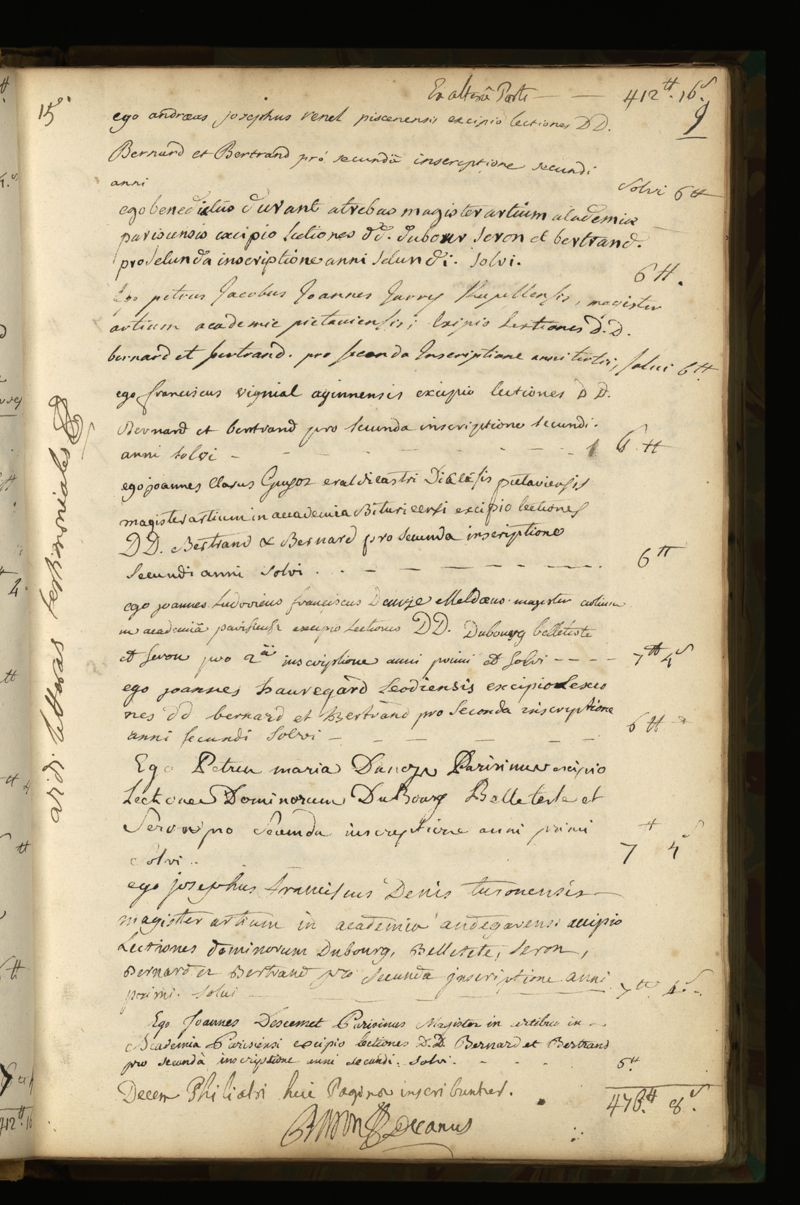 Ex altera Parte — — 412 ₶. 16 s
15
9
ego andræas josephus Venel piscenensis excipio lectiones DD.
Bernard et Bertrand pro secundâ inscriptione secundi
anni solvi 6 ₶
ego benedictus durant atrebas magister artium academiæ
parisiensis excipio lectiones dd. dubour seron et bertrand.
pro secunda inscriptione anni secundi. solvi. 6 ₶.
Ego petrus Jacobus Joannes Rupellensis, magister
artium academie pictaviensis; Excipio Lectiones D.D.
bernard et bertrand. pro secunda Inscriptione anni tertii, solui 6 ₶
ego franciscus vignial aginnensis excipio lectiones D D.
Bernard et bertrand pro secunda inscriptione secundi.
anni solvi - - - - - - 6 ₶
ego joannes Clarus Guyot eraldicastri Diœcesis pictaviensis
magister artium in accademia Bituricensi excipio lectiones
DD. Bertrand & Bernard pro secunda inscriptione
secundi anni solvi . - - - - - - 6 ₶
ego joannes Ludovicus franciscus Meldæus magister artium
in academiâ parisiensi excipio Lectiones DD. Dubourg belleteste
et Seron pro 2.â inscriptione anni primi et solvi - - - - 7 ₶ 4 s
ego joannes hauvegard Leodiensis excipio Lexio
nes dd bernard et Bertrand pro Seconda inscryptione
anni secundi solvi - - - - - 6 ₶
Ego Petrus maria Parisinus excipio
Lectiones Dominorum DuBourg Belleteste et
Seron pro Secunda inscryptione anni primi
solvi .. 7 ₶ 4 s
ego josephus franciscus Denis turonensis
magister artium in academia andegavensi accipio
Lectiones dominorum Dubourg, Belletete, Seron,
Bernard et Bertrand pro secunda jnscriptione anni
primi. solui 7 ₶ 4 s.
Ego Joannes Descemet Parisinus Magister in artibus in
Academia Parisiensi excipio lectiones D.D. Bernard et Bertrand
pro secundâ inscriptione anni secundi. solvi. - - 6 ₶
Decem Philiatri huic Paginæ inscribuntur. 478 ₶. 8 s.
Decanus
avidi litteras testimoniales